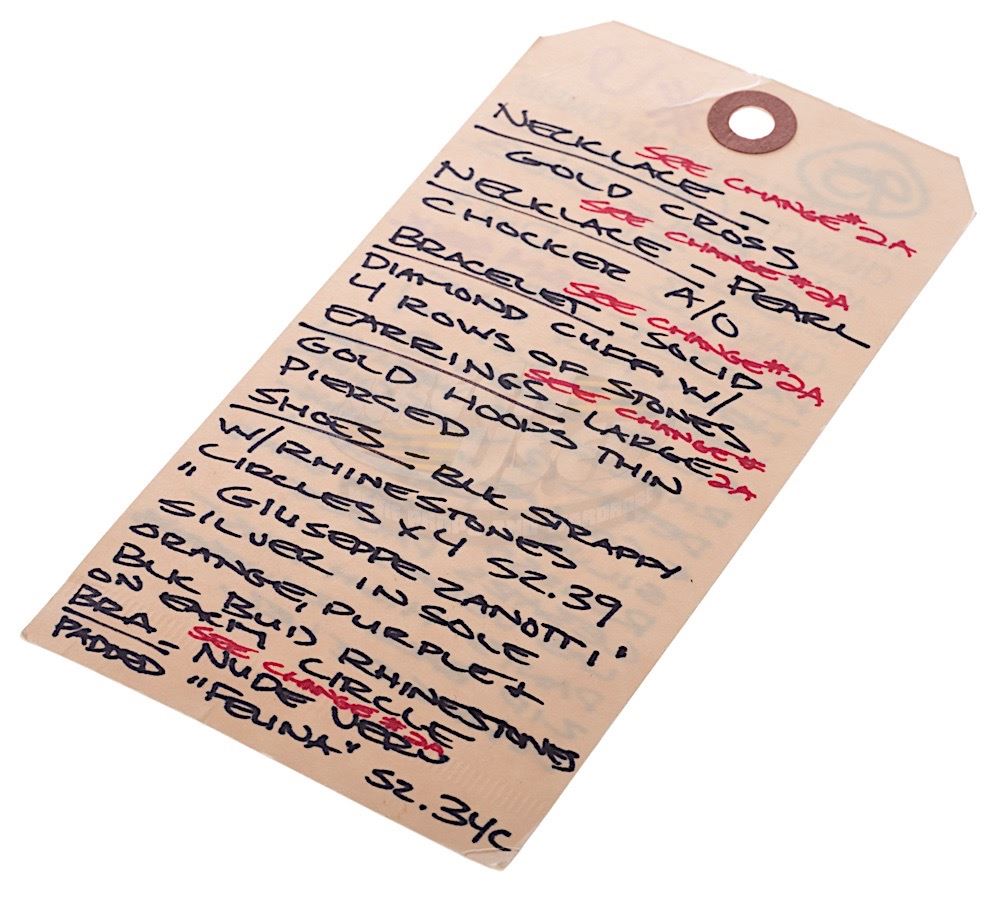 NECKLACE -
SEE CHANGE #2A
GOLD CROSS
NECKLACE - PEARL
SEE CHANGE #2A
CHOCKER A/O
BRACELET - SOLID
SEE CHANGE #2A
DIAMOND CUFF W/
4 ROWS OF STONES
EARRINGS - LARGE
SEE CHANGE #2A
GOLD HOOPS THIN
PIERCED
SHOES - BLK STRAPPY
W/RHINESTONES
"CIRCLES X4 SZ.39
" GIUSEPPE ZANOTTI"
SILVER IN SOLE
ORANGE, PURPLE +
BLK BUID RHINESTONES
ON EACH CIRCLE
BRA - NUDE VERO
SEE CHANGE #2A
PADDED "FELINA"
SZ.34C